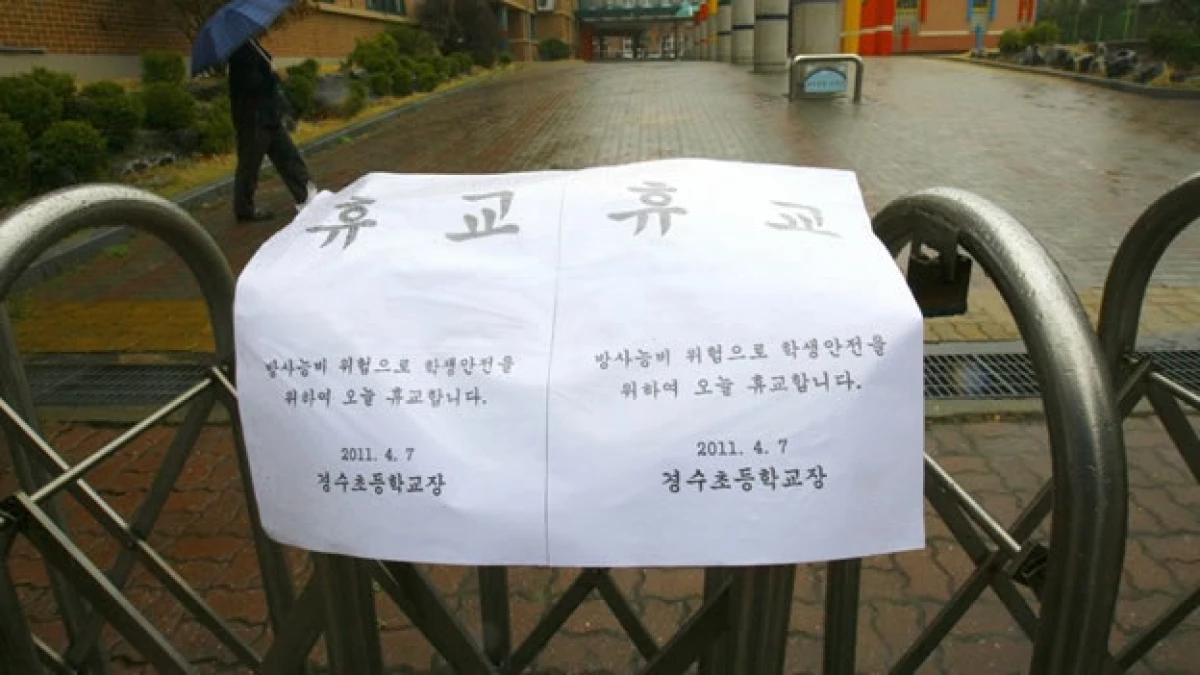 휴 교
방사능비 위험으로 학생안전을
위하여 오늘 휴교합니다.
2011. 4. 7
경수초등학교장
휴 교
방사능비 위험으로 학생안전을
위하여 오늘 휴교합니다.
2011. 4. 7
경수초등학교장